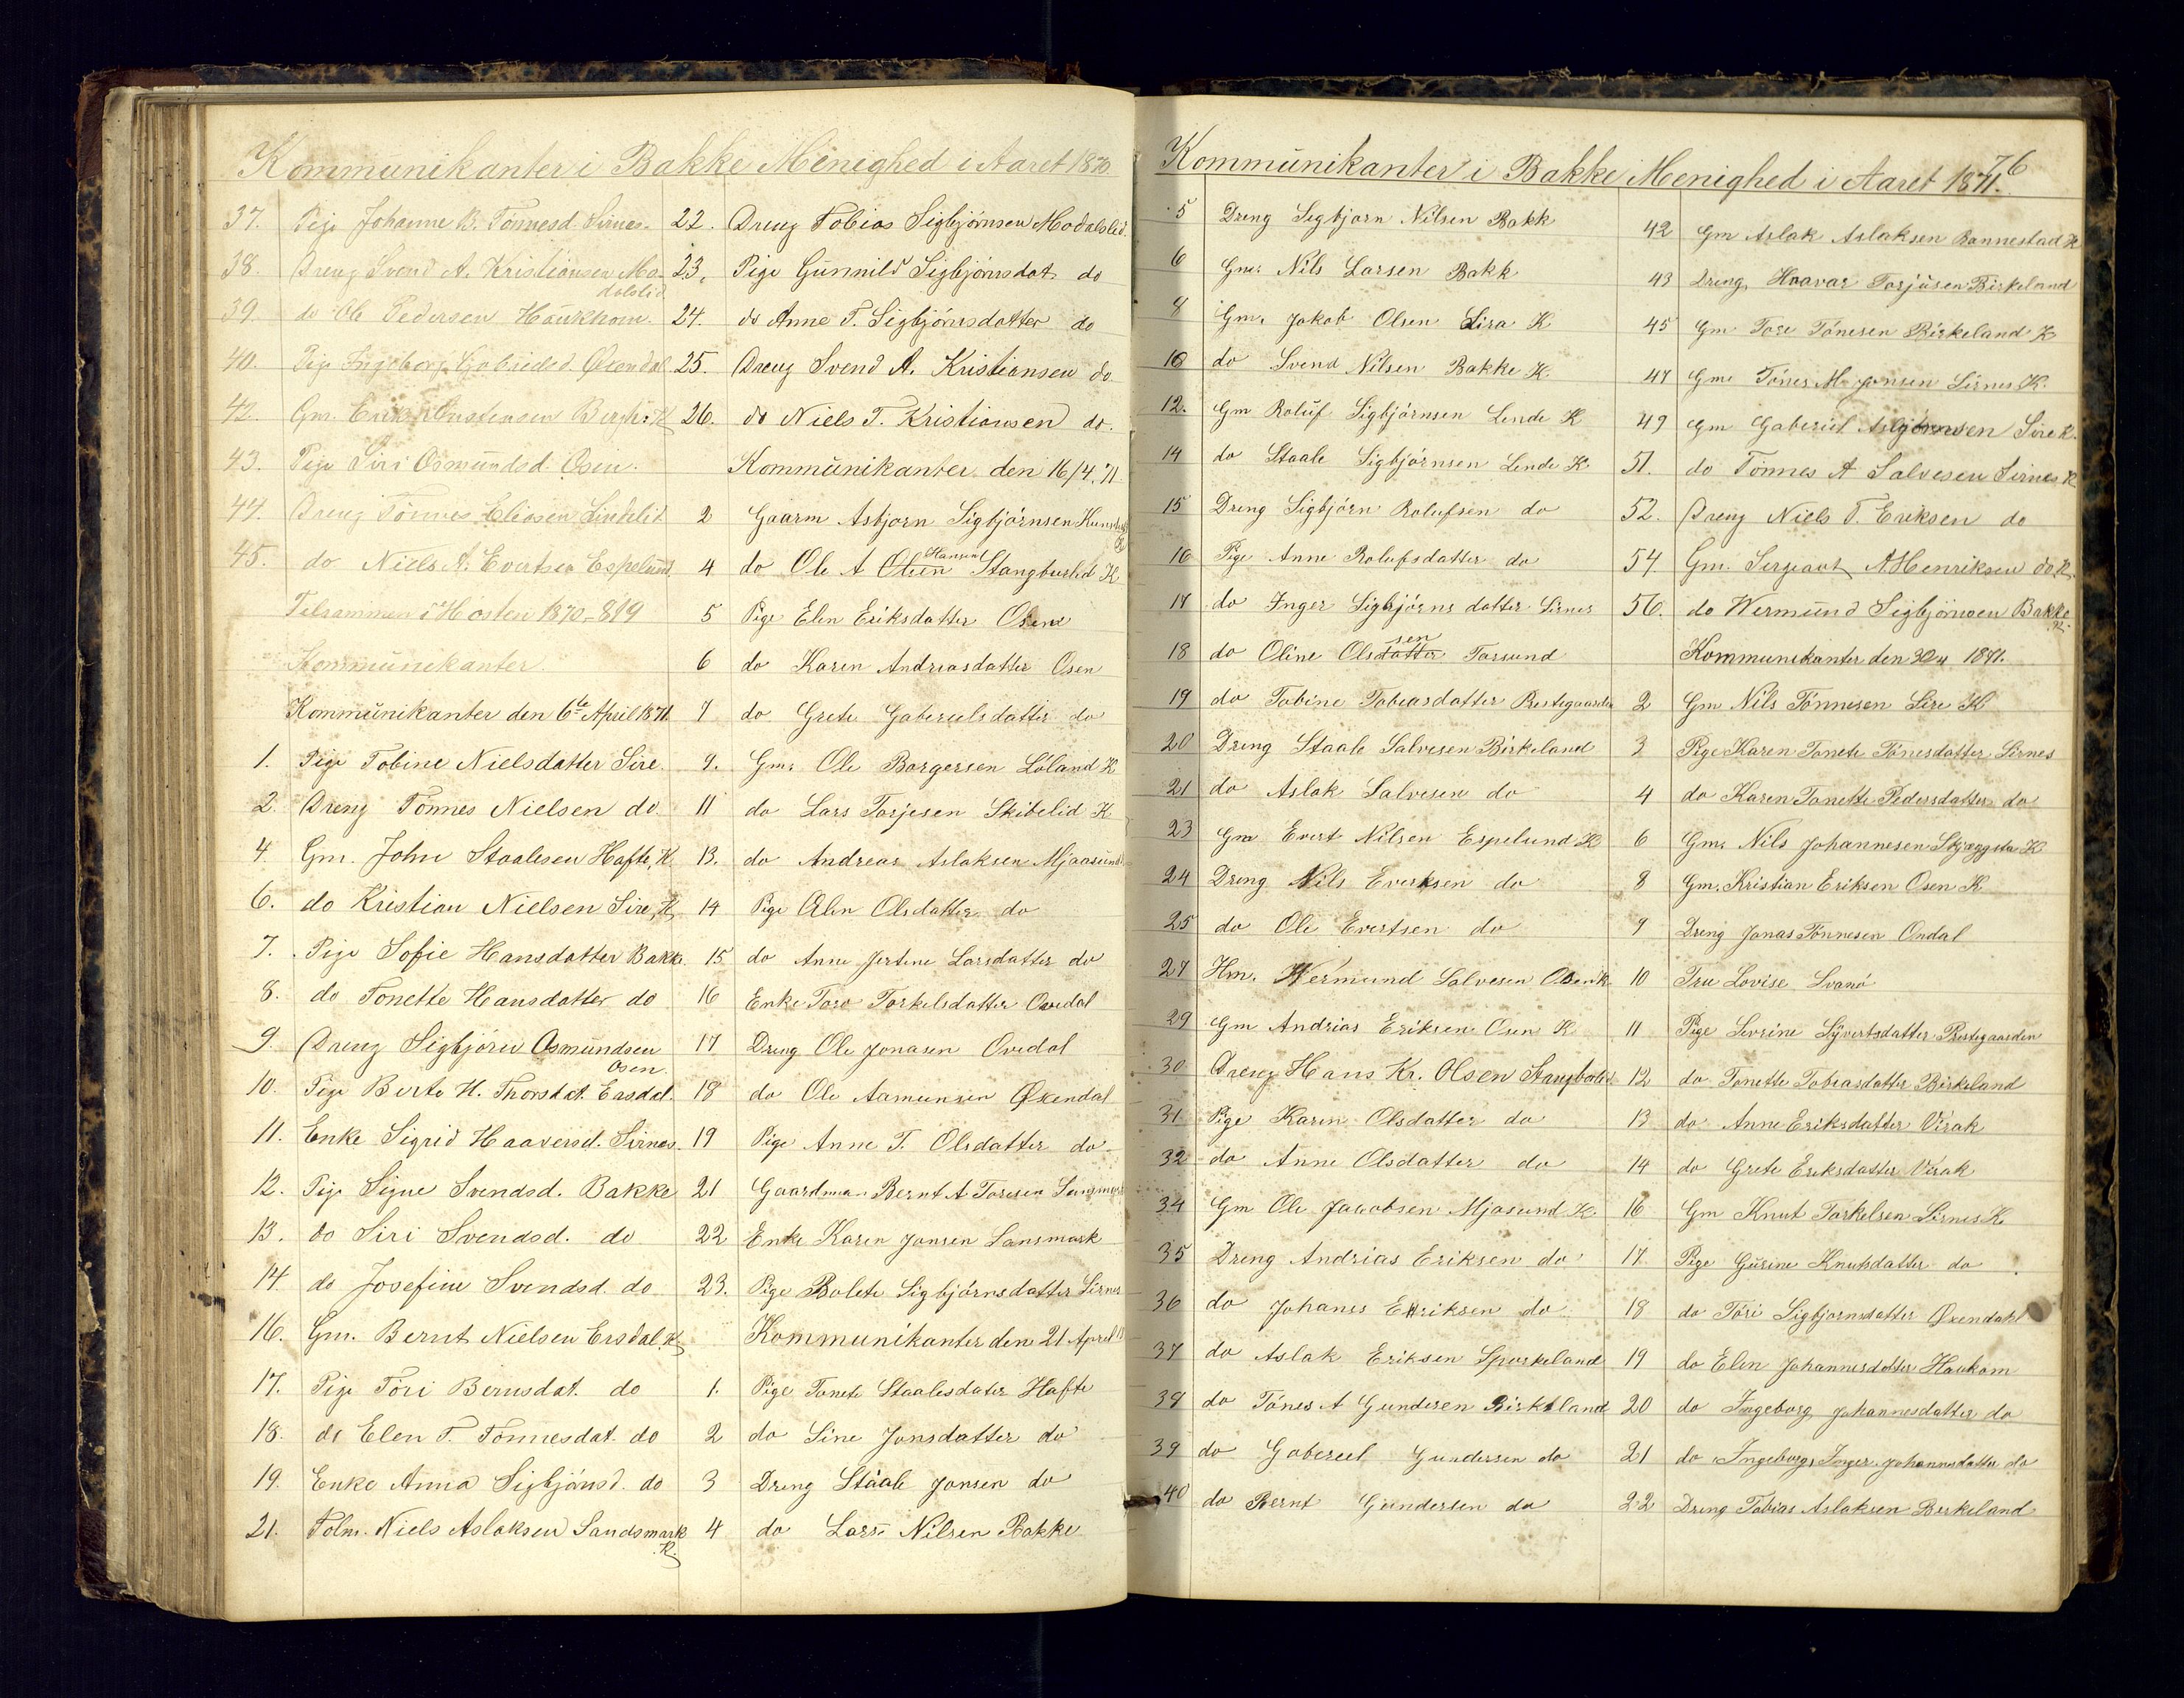 Kommunikanter i Bakke Menighed i Aaret 1870.
37. Pige Johanne B. Tønnesd. Sirnes.
38. Dreng Svend A. Kristiansen Mo-
dalslid
39. do Ole Pedersen Haukhom.
40. Pige Ingeborg Gabrielsd. Øxendal
42. Gm. Erik
43. Pige Siri Osmundsd. Osen.
44. Dreng Tønnes Eliasen Linklid
45. do Niels A. Evertsen Espelund
Tilsammen i Høsten 1870 - 819
Kommunikanter.
Kommunikanter den 6te April 1871.
1. Pige Tobine Nielsdatter Sire.
2. Dreng Tønnes Nielsen do.
4. Gm. John Staalesen Hafte, K
6. do Kristian Nielsen Sire, K
7. Pige Sofie Hansdatter Bakk.
8. do Tonette Hansdatter do
9. Dreng Sigbjørn Osmundsen
Osen.
10. Pige Berte H. Thorsdat. Ersdal.
11. Enke Sigrid Haaversd. Sirnes.
12. Pige Signe Svendsd. Bakke
13. do Siri Svendsd. do
14. do Josefine Svendsd. do
16. Gm. Bernt Nielsen Ersdal. K
17. Pige Tøri Bernsdat. do
18. do Elen T. Tønnesdat. do
19. Enke Anna Sigbjønsd. do
21. Folm. Niels Aslaksen Sandsmark
K.
22. Dreng Tobias Sigbjørnsen Modalslid.
23. Pige Gunnild Sigbjørnsdat. do
24. do Anne T. Sigbjørnsdatter do
25. Dreng Svend A. Kristiansen do
26. do Niels T. Kristiansen do.
Kommunikanter den 16/4. 71.
2 Gaarm Asbjorn Sigbjørnsen
4 do Ole A Olsen Hansen Stangborlid K
5 Pige Elen Eriksdatter Osen
6 do Karen Andreasdatter Osen
7 do Grete Gaberielsdatter do
9. Gm. Ole Borgersen Løland K
11 do Lars Torjesen Skibelid K
13. do Andreas Aslaksen Mjaasund
14 Pige Elen Olsdatter do
15 do Anne Jertine Larsdatter do
16 Enke Toro Torkelsdatter Ovedal
17 Dreng Ole Jonasen Ovedal
18 do Ole Aamunsen Øxendal
19 Pige Anne T. Olsdatter do
21 Gaardman Bernt A Toresen
22 Enke Karen Jonsen Sansmark
23. Pige Bolete Sigbjørnsdatter Sirnes
Kommunikanter den 21 April
1. Pige Tonete Staalesdater Hafte
2 do Sine Jonsdatter do
3 Dreng Staale Jonsen do
4 do Lars Nilsen Bakke
Kommunikanter i Bakke Menighed i Aaret 1871. 76
5 Dreng Segbjorn Nilsen Bakk
6 Gm. Nils Larsen Bakk
8 Gm. Jakob Olsen Lira K
10 do Svend Nilsen Bakke K.
12. Gm Roluf Sigbjørnsen Lende K
14 do Staale Sigbjørnsen Lende K
15 Dreng Sigbjørn Rolufsen do
16 Pige Anne Rolufsdatter do
17 do Inger Sigbjørns datter Sirnes
18 do Oline Olsdatter sen Tarsund
19 do Tobine Tobeasdatter Prestegaarden
20 Dreng Staale Salvesen Birkeland
21 do Aslak Salvesen do
23 Gm Evert Nilsen Espelund K
24 Dreng Nils Evertsen do
25 do Ole Evertsen do
27 Hm. Wermund Salvesen Osen K
29 Gm Andrias Eriksen Osen K
30 Dreng Hans Kr. Olsen Stangborlid
31 Pige Karen Olsdatter do
32 do Anne Olsdatter do
34 Gm Ole Jacobsen Mjasund K
35 Dreng Andrias Eriksen do
36 do Johanes Eriksen do
37 do Aslak Eriksen Sparkeland
39 do Tønes A Gundersen Birkeland
39 do Gabereel Gundersen do
40 do Bernt Gundersen do
42 Gm Aslak Aslaksen Rannestad K
43 Dreng Haavar Torjusen Birkeland
45 Gm Tore Tønesen Birkeland K
47 Gm. Tønes M. Jonsen Sirnes K.
49 Gm Gaberiel Sire K.
51. do Tønnes A Salvesen Sirnes K
52. Dreng Niels T. Eriksen do
54. Gm. Sergeant A Henriksen do. K.
56. do Wermund Sigbjørnsen Bakke
K.
Kommunikanter den 30/4 1871.
2 Gm Nils Tønnesen Sire K
3 Pige Karen Tonete Tønesdatter Sirnes
4 do Karen Tonette Pedersdatter do
6 Gm. Nils Johannesen Skjeggsta K
8 Gm. Kristian Eriksen Osen K
9 Dreng Jonas Tønnesen Ondal
10 Fru Lovise Svanø
11 Pige Sevrine Syvertsdatter Prestegaarden
12 do Tonette Tobeasdatter Birkeland
13 do Anne Eriksdatter Virak
14 do Grete Eriksdatter Virak
16 Gm Knut Torkelsen Sirnes K
17 Pige Gurine Knutsdatter do
18 do Tøri Sigbjornsdatter Øxendahl
19 do Elen Johannesdatter Haukom
20 do Ingeborg Johannesdatter do
21 do Ingeborg Inger Johannsdatter do
22 Dreng Tobias Aslaksen Berkeland